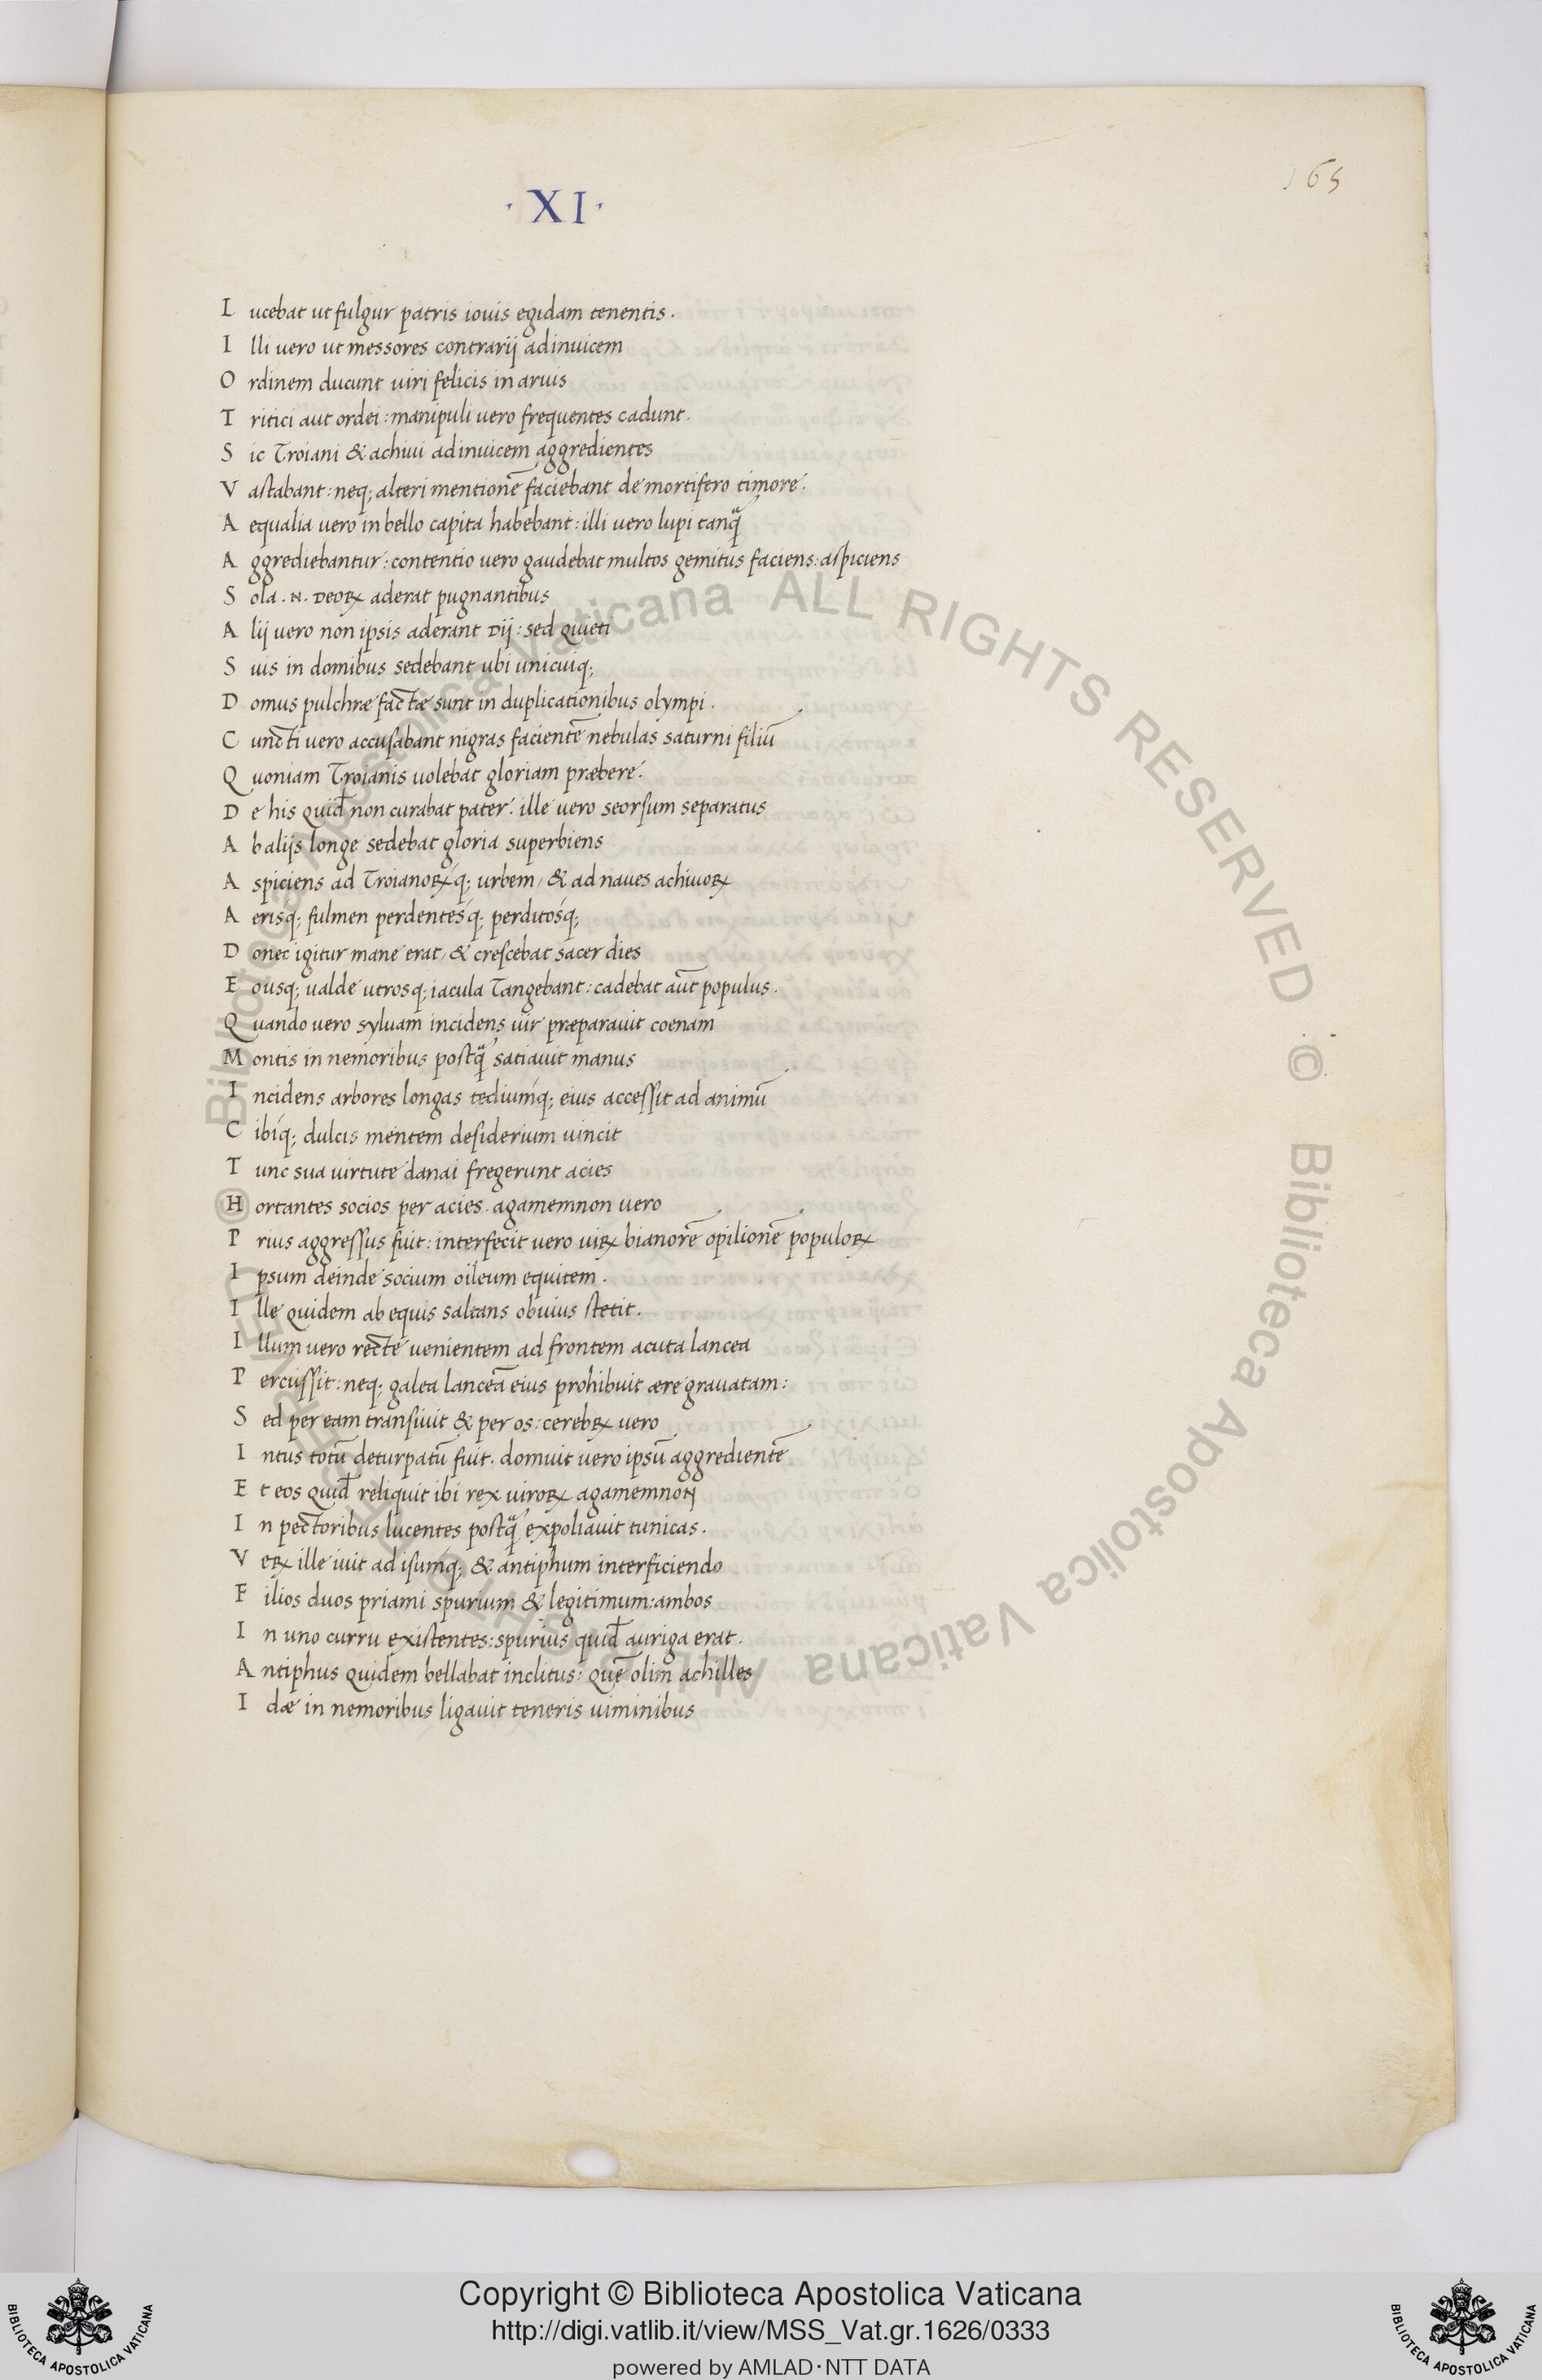 165
· XI ·
Lucebat ut fulgur patris iouis egidam tenentis.
Illi uero ut messores contrarij adinuicem
Ordinem ducunt uiri felicis in aruis
Tritici aut ordei: manipuli uero frequentes cadunt.
Sic Troiani & achiui adinuicem aggredientes
Vastabant: neq; alteri mentionē faciebant de mortifero timore.
Aequalia uero in bello capita habebant: illi uero lupi tanq̃
Aggrediebantur: contentio uero gaudebat multos gemitus faciens: aspiciens
Sola .N. DEOꝜ aderat pugnantibus
Alij uero non ipsis aderant Dij: sed quieti
Suis in domibus sedebant ubi unicuiq;
Domus pulchræ factæ sunt in duplicationibus olympi.
Cuncti uero accusabant nigras facientē nebulas saturni filiū
Quoniam Troianis uolebat gloriam præbere.
De his quid̄ non curabat pater. ille uero seorsum separatus
Ab alijs longe sedebat gloria superbiens
Aspiciens ad Troianoꝝq; urbem, & ad naues achiuoꝝ
Aerisq; fulmen perdentesq; perditosq;
Donec igitur mane erat, & crescebat sacer dies
Eousq; ualde utrosq; iacula Tangebant: cadebat aūt populus.
Quando uero syluam incidens uir præparauit coenam
Montis in nemoribus postq̃ satiauit manus
Incidens arbores longas tediumq; eius accessit ad animū
Cibiq; dulcis mentem desiderium uincit
Tunc sua uirtute danai fregerunt acies
Hortantes socios per acies. agamemnon uero
Prius aggressus fuit: interfecit uero uiꝝ bianorē opilionē populoꝝ
Ipsum deinde socium oileum equitem.
Ille quidem ab equis saltans obuius stetit.
Illum uero recte uenientem ad frontem acuta lancea
Percussit: neq; galea lanceā eius prohibuit ære grauatam:
Sed per eam transiuit & per os: cerebꝝ uero
Intus totū deturpatū fuit. domuit uero ipsū aggredientē
Et eos quid̄ reliquit ibi rex uiroꝝ agamemnon
In pectoribus lucentes postq̃ expoliauit tunicas.
Veꝝ ille iuit ad isumq; & antiphum interficiendo
Filios duos priami spurium & legitimum: ambos
In uno curru existentes: spurius quid̄ auriga erat.
Antiphus quidem bellabat inclitus: quē olim achilles
Idæ in nemoribus ligauit teneris uiminibus
© Biblioteca Apostolica Vaticana ALL RIGHTS RESERVED
© Biblioteca Apostolica Vaticana ALL RIGHTS RESERVED
Copyright © Biblioteca Apostolica Vaticana
http://digi.vatlib.it/view/MSS_Vat.gr.1626/0333
powered by AMLAD·NTT DATA
BIBLIOTECA APOSTOLICA VATICANA
BIBLIOTECA APOSTOLICA VATICANA